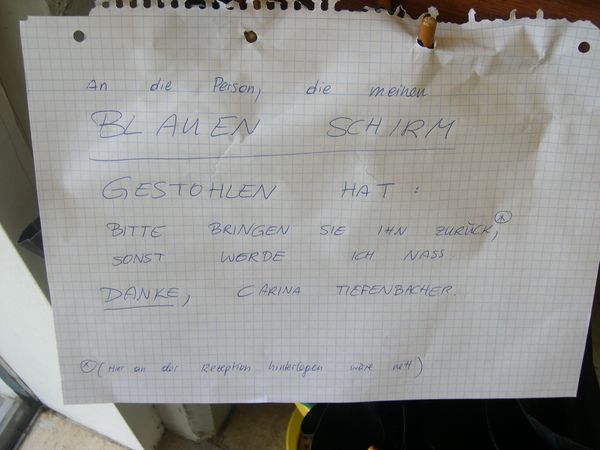 An die Person, die meinen
BLAUEN SCHIRM
GESTOHLEN HAT:
BITTE BRINGEN SIE IHN ZURÜCK, (*)
SONST WERDE ICH NASS.
DANKE, CARINA TIEFENBACHER.
(*) (Hier an der Rezeption hinterlegen wäre nett)